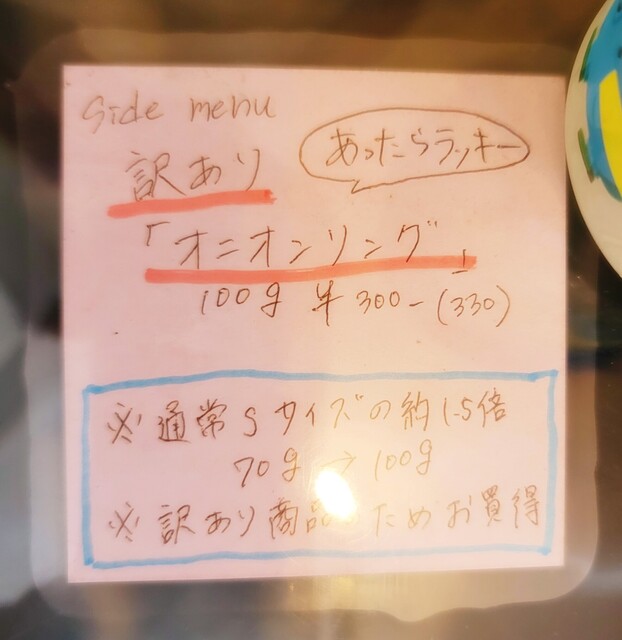 side menu
訳あり
あったらラッキー
「オニオンリング」
100g ¥300-(330)
※通常Sサイズの約1.5倍
70g→100g
※訳あり商品 ためお買得